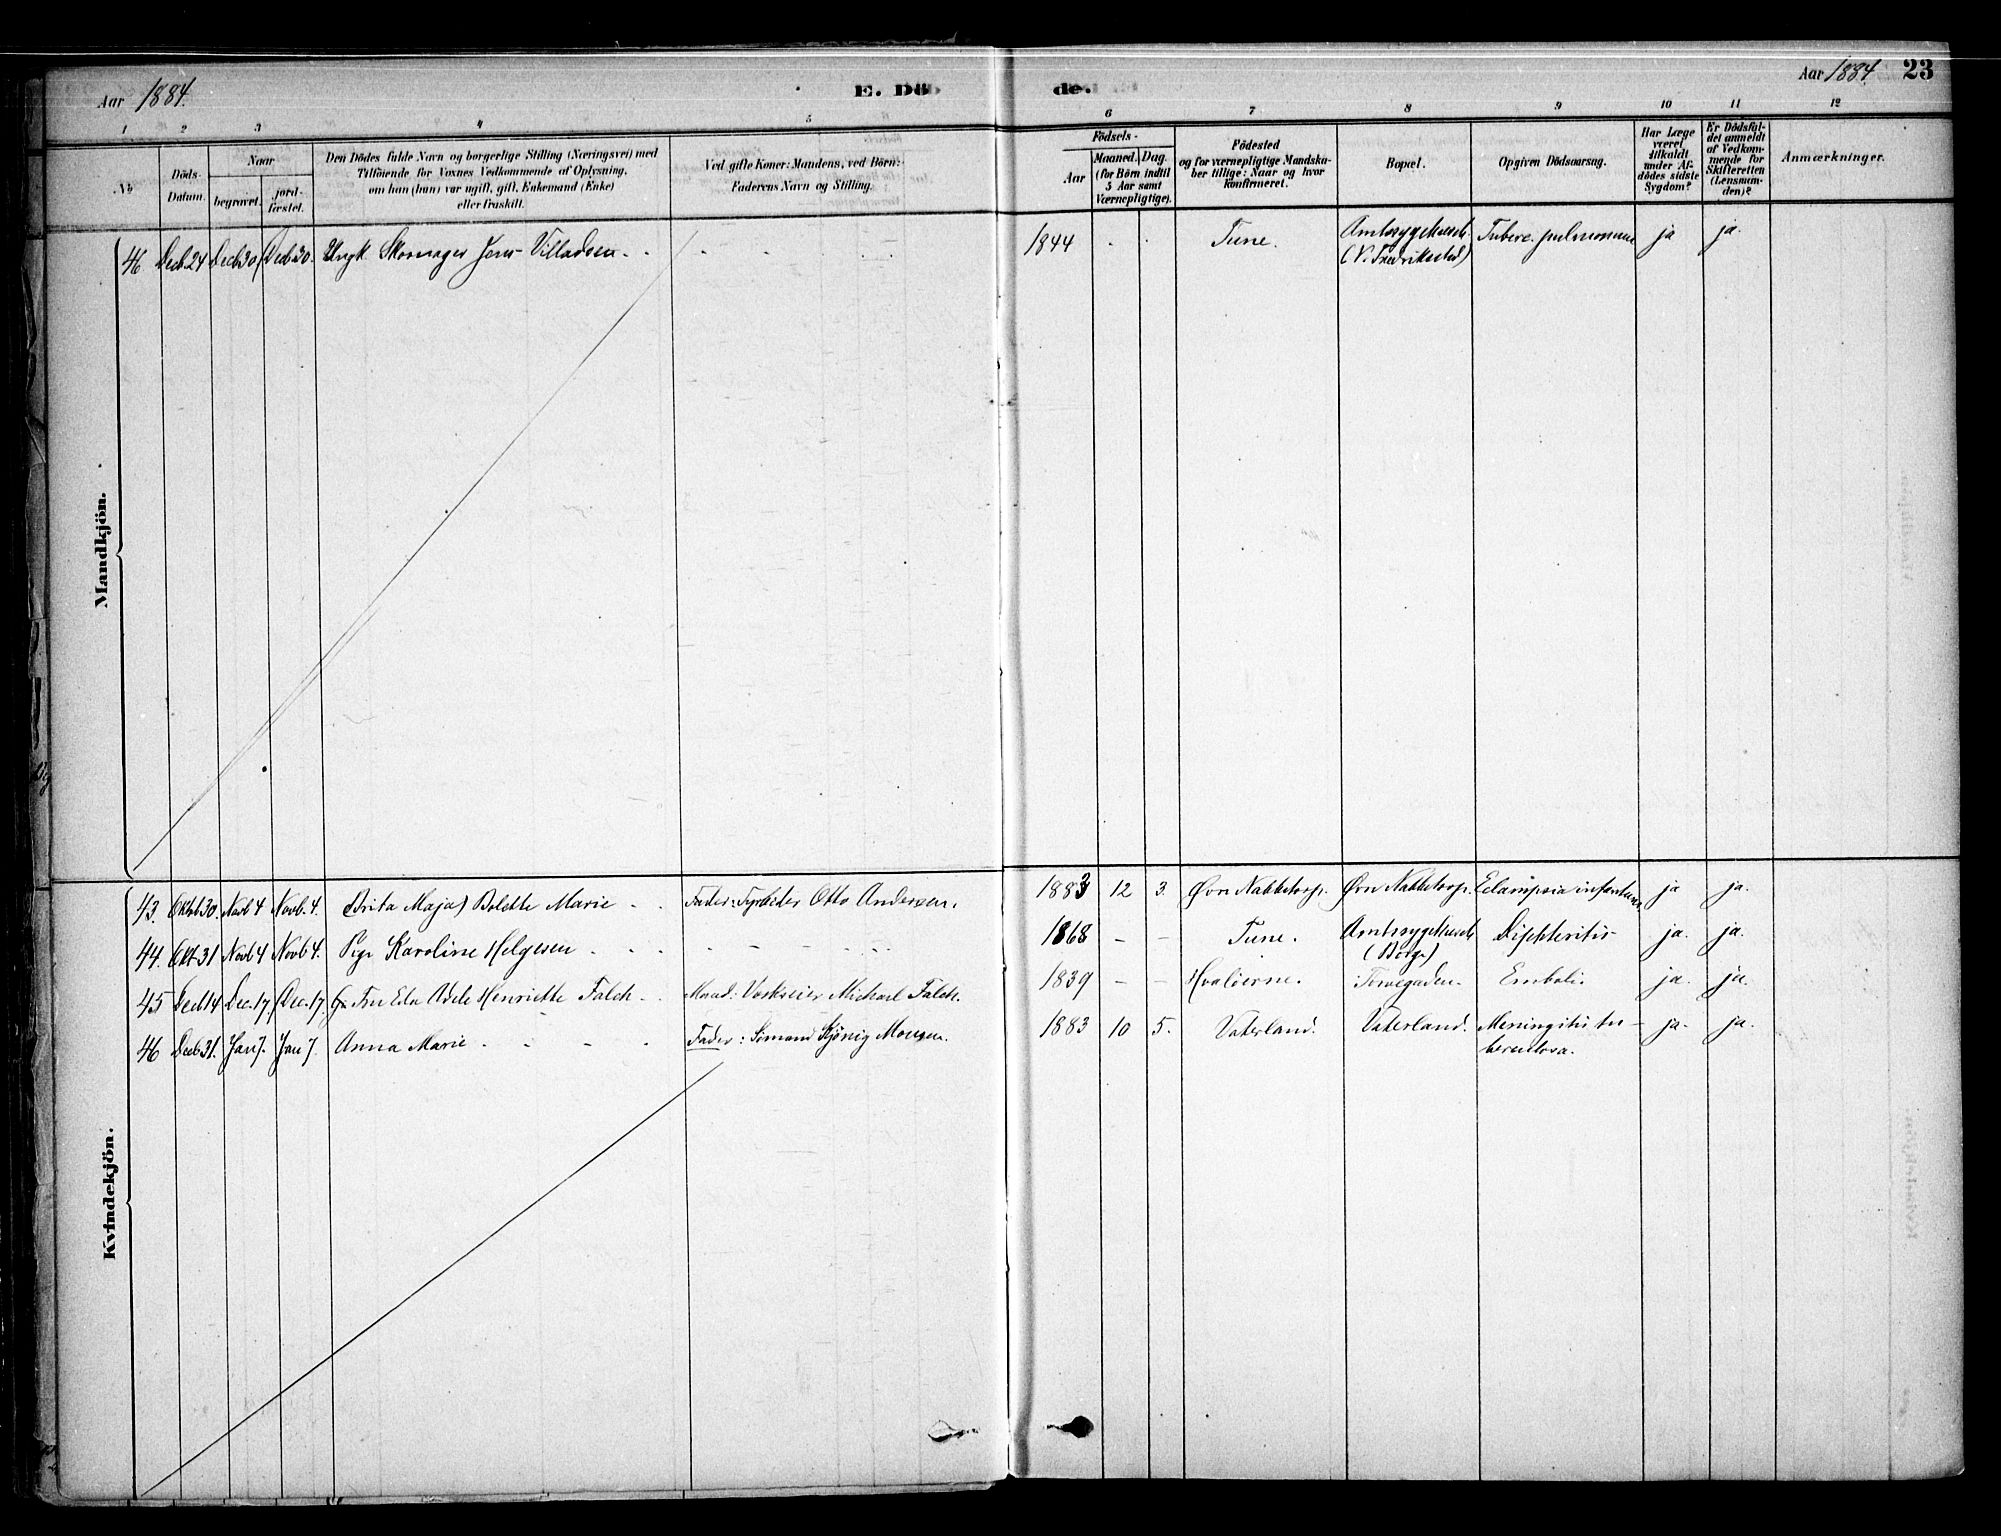 Aar 1884.
E. Döde.
Aar 1884
23
1 2 3 4 5 6 7 8 9 10 11 12
No
Döds-Datum.
Naar
begravet.
jord-fæstet.
Den Dödes fulde Navn og borgerlige Stilling (Næringsvei) med
Tilföiende for Voxnes Vedkommende af Oplysning,
om han (hun) var ugift, gift, Enkemand (Enke)
eller fraskilt.
Ved gifte Koner: Mandens, ved Börn:
Faderens Navn og Stilling.
Födsels-
Aar
Maaned. Dag.
(for Börn indtil
5 Aar samt
Værnepligtige).
Födested
og for værnepligtige Mandska-
ber tillige: Naar og hvor
konfirmeret.
Bopæl.
Opgiven Dödsaarsag.
Har Læge
været
tilkaldt
under Af-
dödes sidste
Sygdom?
Er Dödsfal-
det anmeldt
af Vedkom-
mende for
Skifteretten
(Lensman-
den)?
Anmærkninger.
Mandkjön.
46 Decb 24 Decb 30 (Decb 30. Ungk. Skomager Jens Villadsen 1844 Tune. Amtssygehuset Tuberc. pulmonum ja ja.
(V. Fredrikstad)
Kvindekjön.
43. Oktb 30. Novb 4 Novb. 4. (Brita Maja) Boldte Marie Fader: Otto Andersen. 1883 12 3. Øvre Nabbetorp. Øvre Nabbetorp. Eclampsia infantum ja ja.
44. Okt 31 Novb 4 Novb 4. Pige Karoline Helgesen 1868 – – Tune. Amtssygehuset Diphteritis ja. ja.
(Borge)
45 Decb 14 Dec. 17. (Dec. 17. Fru Eda Adele Henriette Falch Mand: Værkseier Michael Falch. 1839 – – Hvaløerne. Torvegaden. Emboli. ja. ja.
46 Decb 31. Jan 7. Jan 7. Anna Marie Fader: Sömand Monsen. 1883 10 5. Vaterland. Vaterland. Meningitis tu- ja. ja.
berculosa.